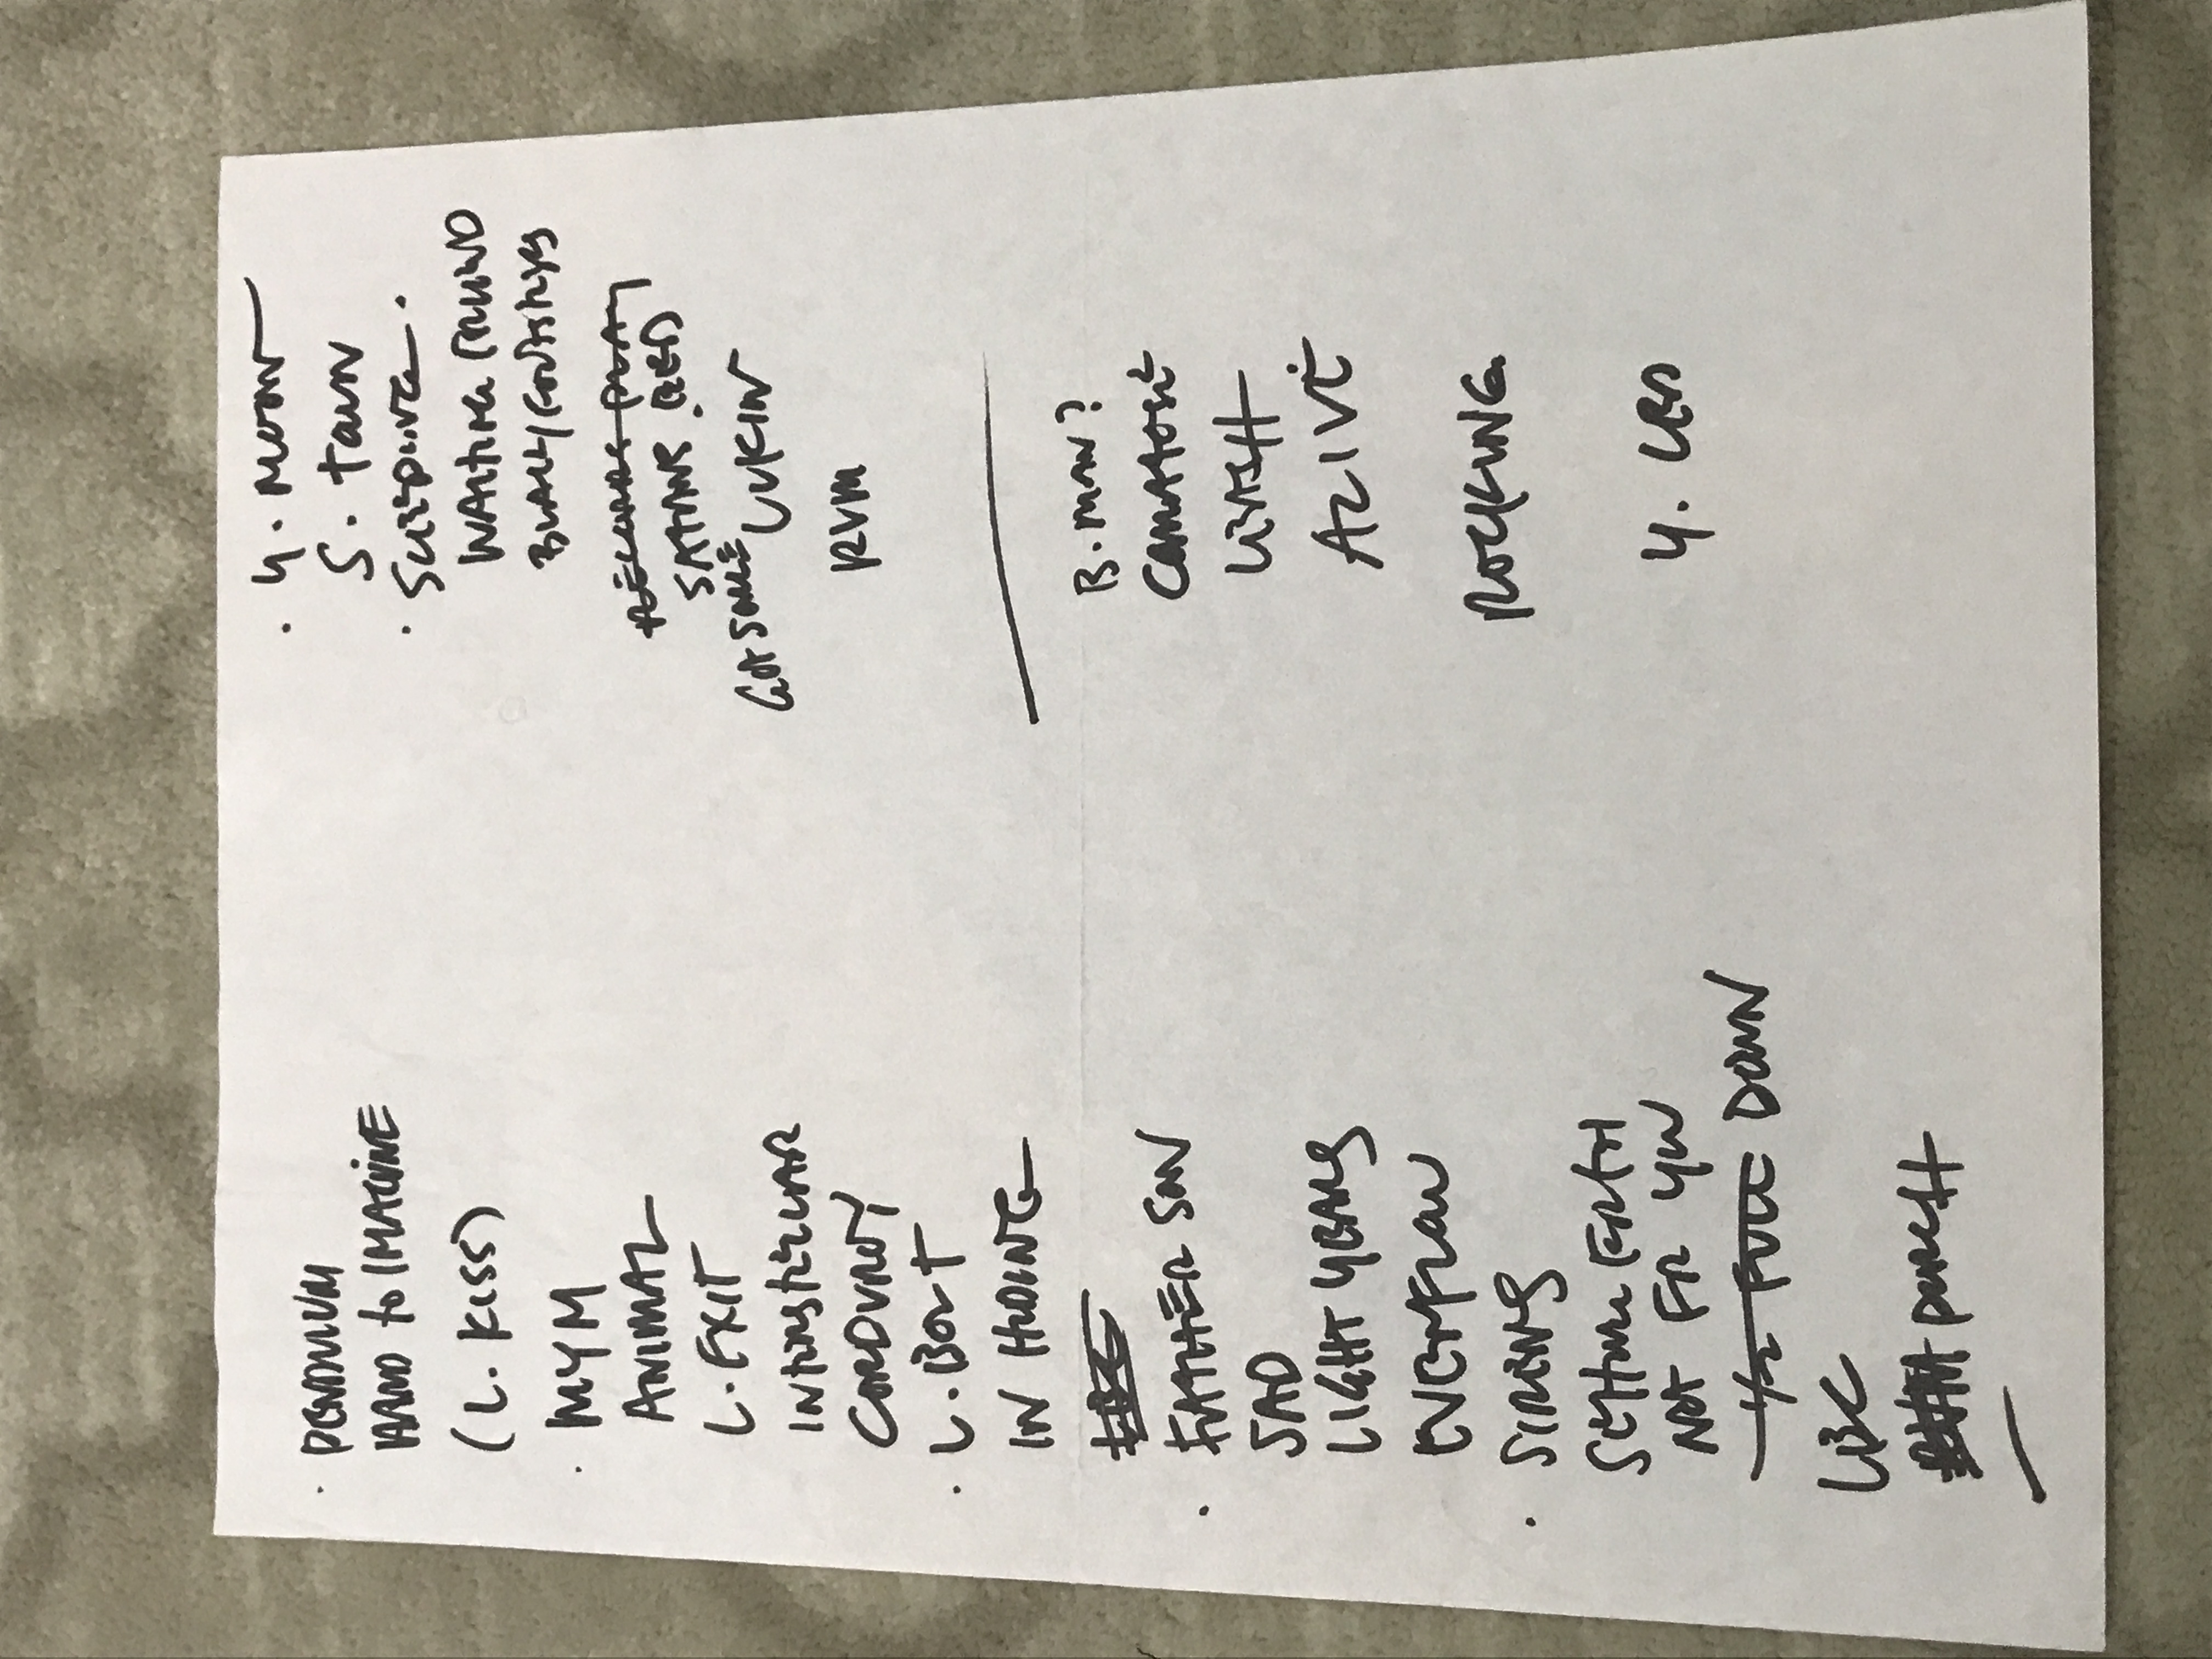 · PENDULUM
HARD to IMAGINE
(L. KISS)
· MYM
ANIMAL
L. EXIT
INTERSTELLAR
CORDUROY
· L. BOLT
IN HIDING
LBC
· FATHER SON
SAD
LIGHT YEARS
EVENFLOW
· SIRENS
SETTING FORTH
NOT FR YOU
1/2 FULL DOWN
LBC
RVM PORCH
· Y. MOON
S. TOWN
· SLEEPING ·
WAITING FRIEND
BLACK/
RECORDS PLAY
SATANS BED
GOT SOME LUKIN
RVM
B. MAN?
COMATOSE
LEASH
ALIVE
ROCKING
Y. LED